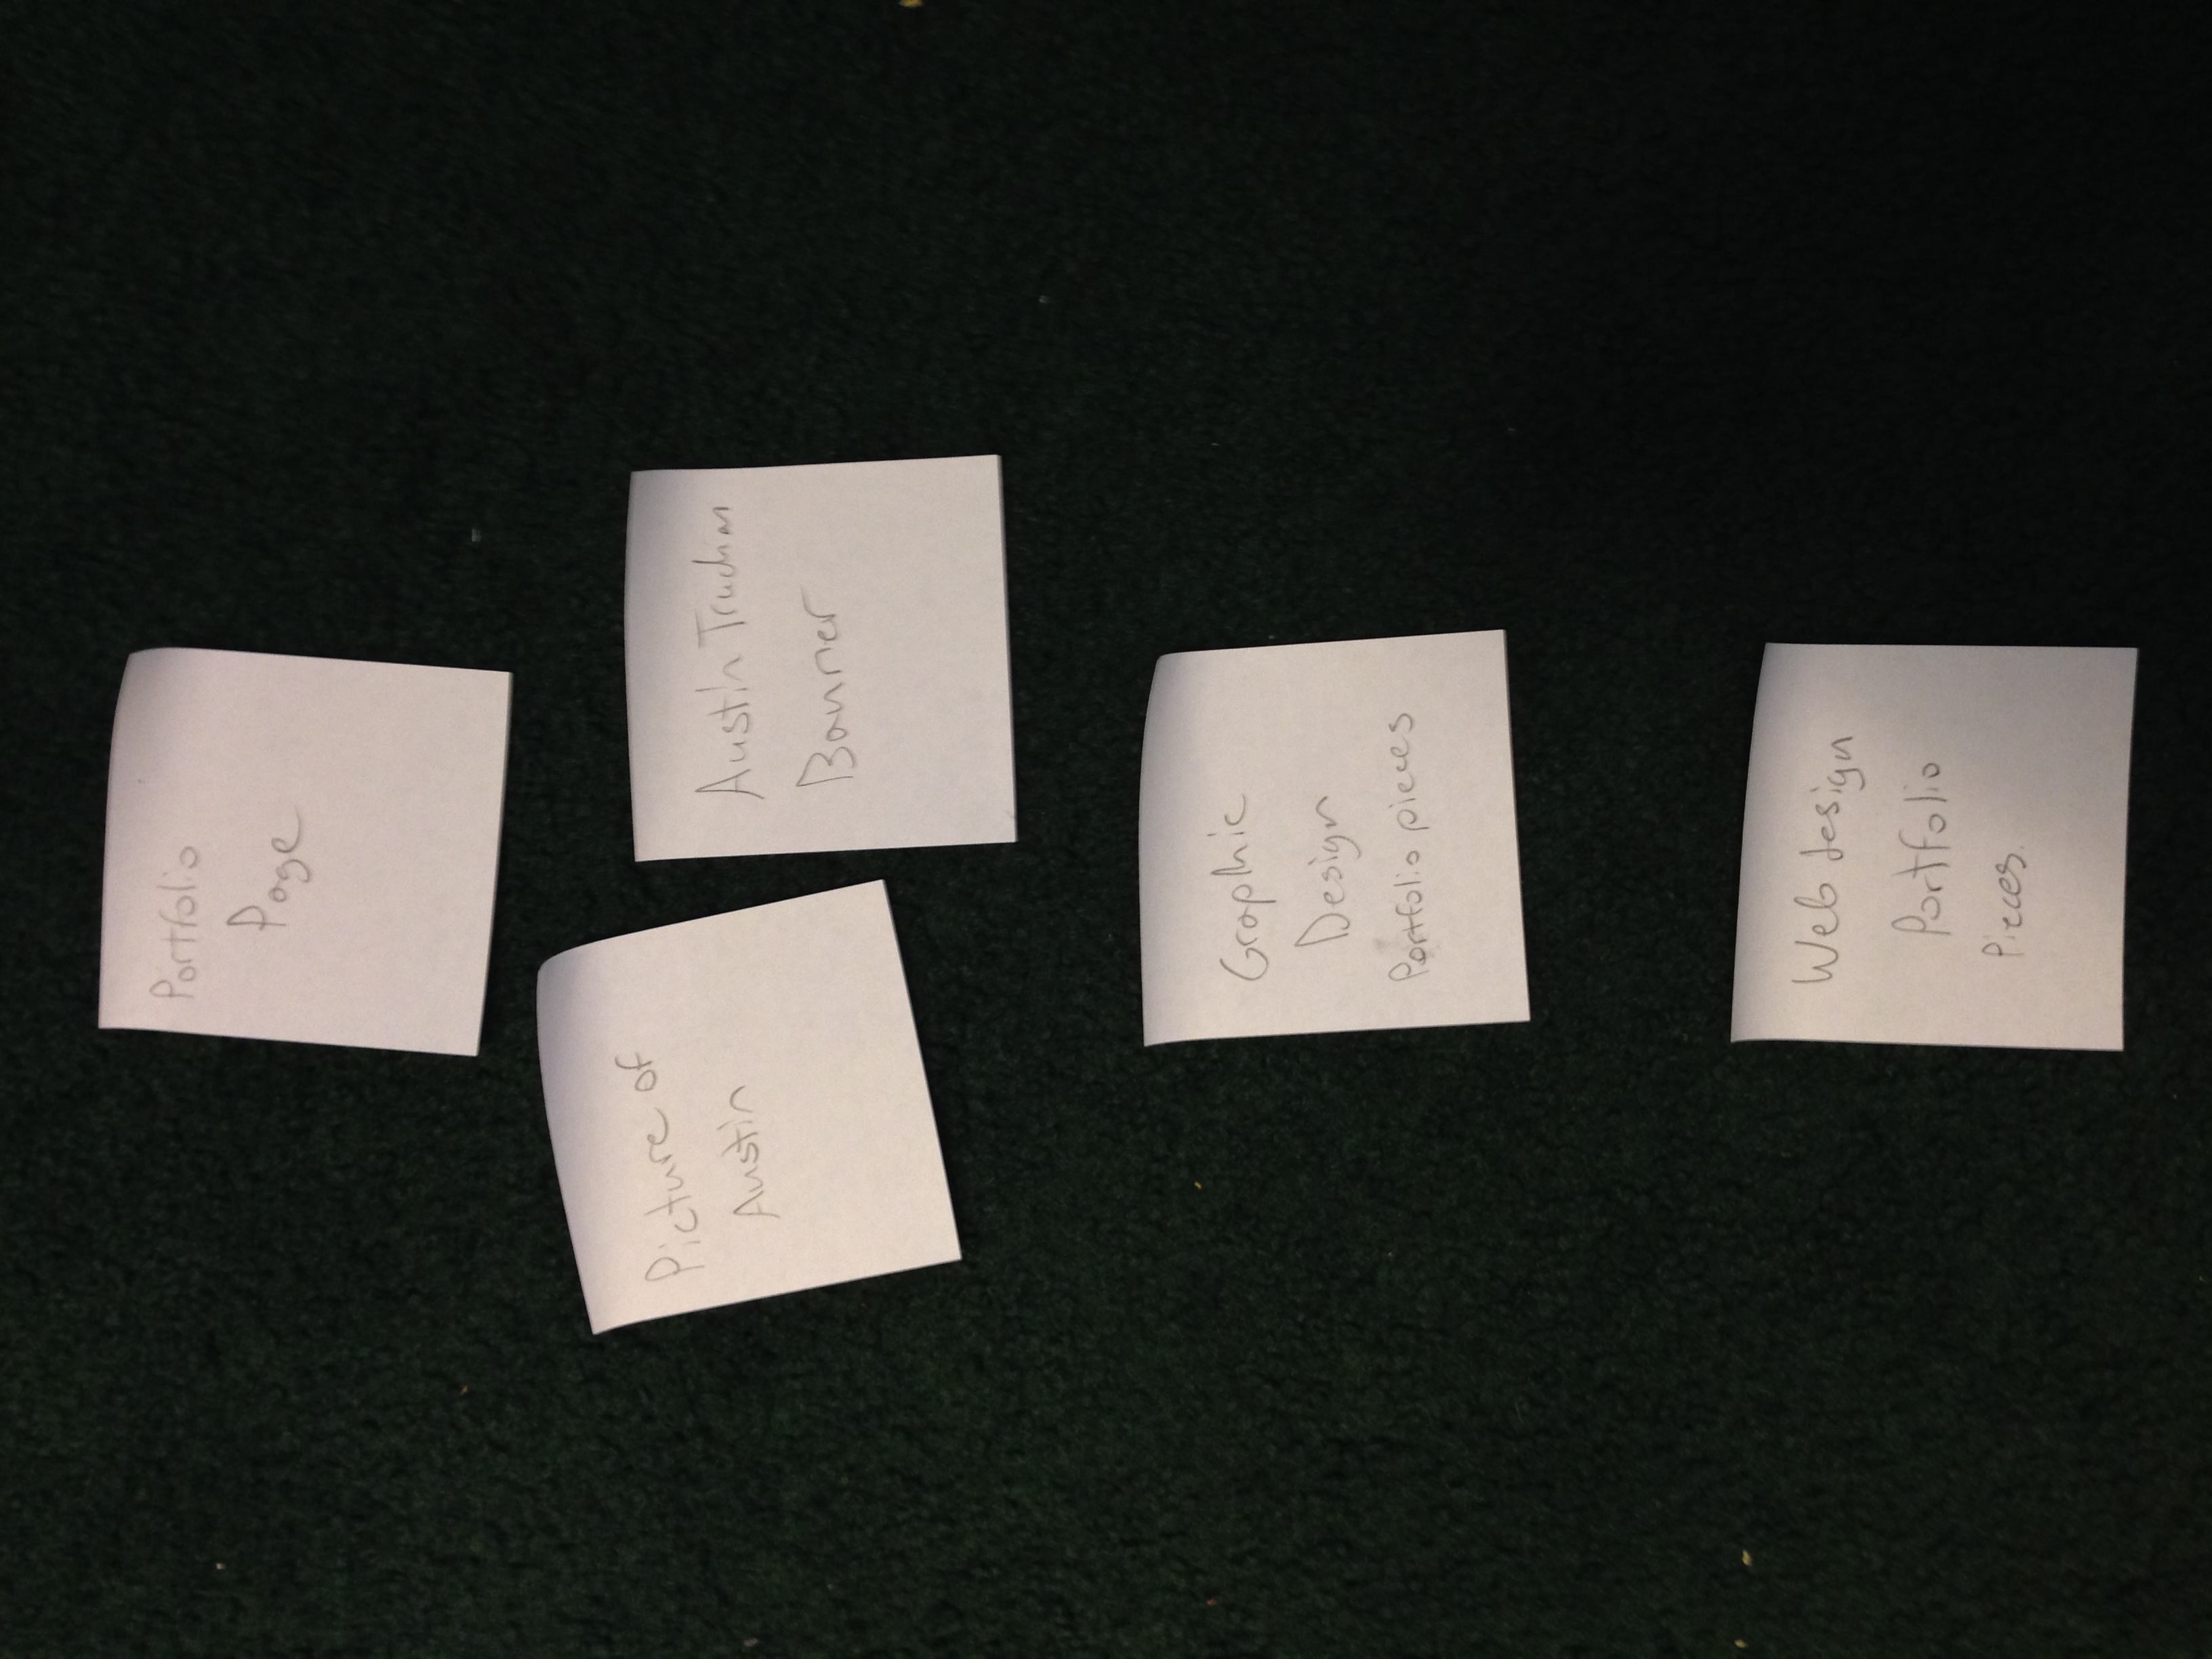 Portfolio
Page
Picture of
Austin
Austin
Banner
Graphic
Design
Portfolio pieces
Web design
Portfolio
Pieces.